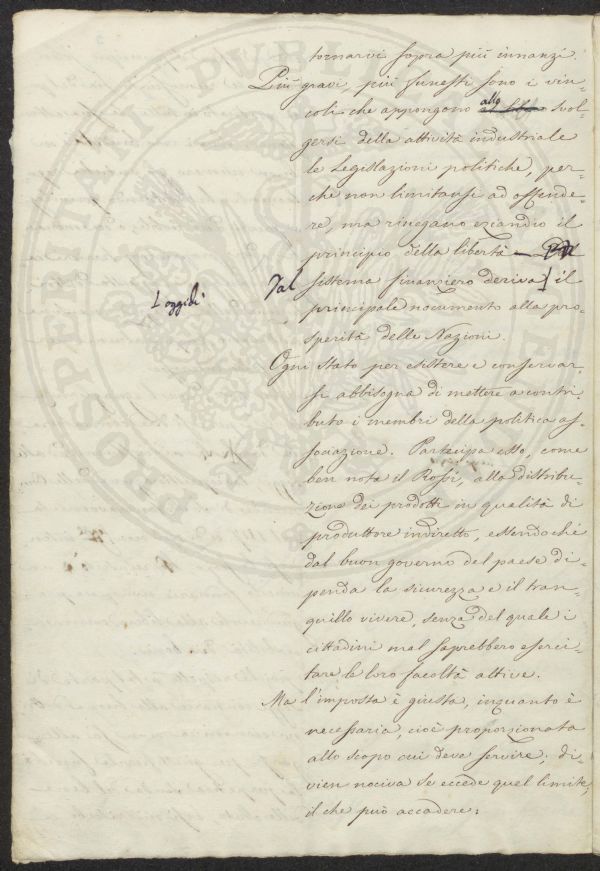 tornarvi sopra più innanzi.
Più gravi, più funesti sono i vin-
coli che appongono allo svol-
gersi della attività industriale
le Legislazioni politiche, per-
chè non limitansi ad offende-
re, ma rinegano eziandio il
principio della libertà —
Dal sistema finanziero deriva il
Loggidì
principale nocumento alla pro-
sperità delle Nazioni.
Ogni stato per esistere e conservar-
si abbisogna di mettere a contri-
buto i membri della politica as-
sociazione. Partecipa esso, come
ben nota il Rossi, alla distribu-
zione dei prodotti in qualità di
produttore indiretto, essendochè
dal buon governo del paese di-
penda la sicurezza e il tran-
quillo vivere, senza del quale i
cittadini mal saprebbero eserci-
tare le loro facoltà attive.
Ma l'imposta è giusta, inquanto è
necessaria, cioè proporzionata
allo scopo cui deve servire; di-
vien nociva se eccede quel limite,
il che può accadere:
PROSPERITATI PVBLICAE